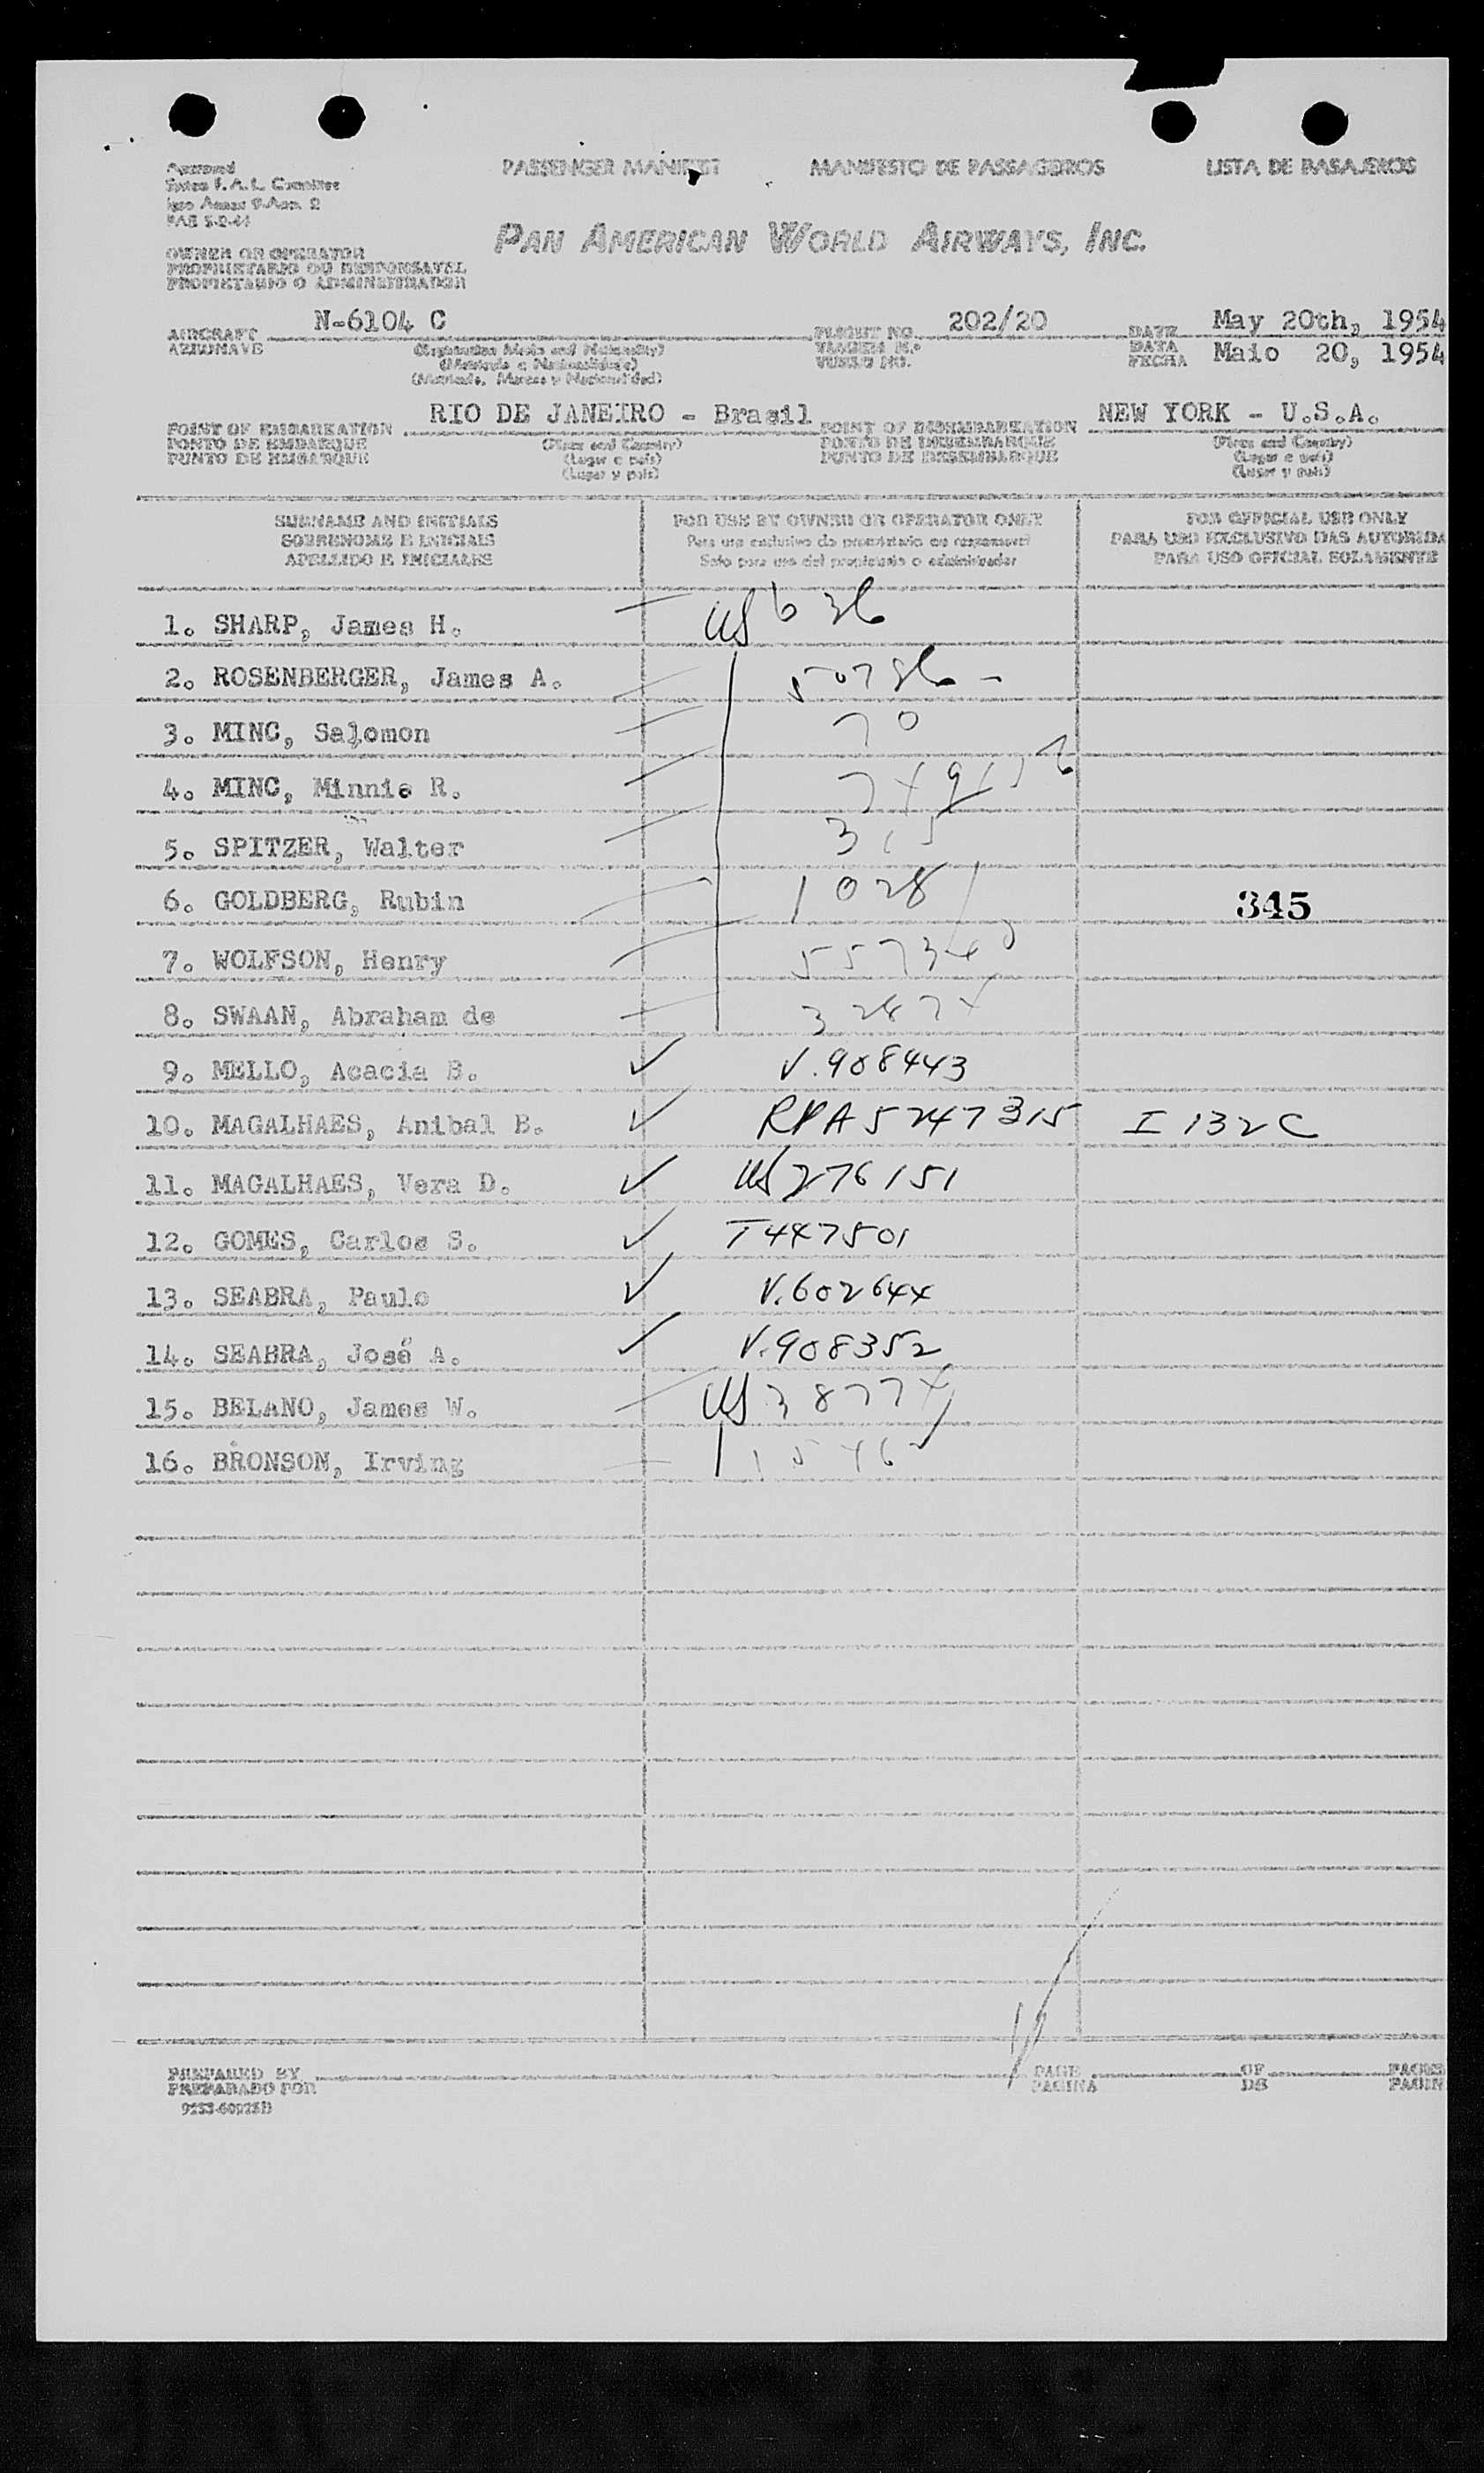 PASSENGER MANIFEST MANIFESTO DE PASSAGEIROS LISTA DE PASAJEROS
Approved
System F. A. L. Committee
Icao Annex 9-App. 2
PAN AMERICAN WORLD AIRWAYS, INC.
OWNER OR OPERATOR
PROPRIETARIO OU RESPONSAVEL
PROPIETARIO O ADMINISTRADOR
AIRCRAFT N-6104 C FLIGHT NO. 202/20 DATE May 20th, 1954
AERONAVE (Registration Marks and Nationality) VIAGEM N.º DATA Maio 20, 1954
(Matricula e Nacionalidade) VUELO NO. FECHA
(Matricula, Marcas y Nacionalidad)
POINT OF EMBARKATION RIO DE JANEIRO - Brasil POINT OF DISEMBARKATION NEW YORK - U.S.A.
PONTO DE EMBARQUE (Place and Country) PONTO DE DESEMBARQUE (Place and Country)
PUNTO DE EMBARQUE (Lugar e país) PUNTO DE DESEMBARQUE (Lugar e país)
(Lugar y país) (Lugar y país)
SURNAME AND INITIALS FOR USE BY OWNER OR OPERATOR ONLY FOR OFFICIAL USE ONLY
SOBRENOME E INICIAIS Para uso exclusivo do proprietario ou responsavel PARA USO EXCLUSIVO DAS AUTORIDA
APELLIDO E INICIALES Solo para uso del propietario o administrador PARA USO OFICIAL SOLAMENTE
1. SHARP, James H. US
2. ROSENBERGER, James A.
3. MINC, Salomon 70
4. MINC, Minnie R.
5. SPITZER, Walter 315
6. GOLDBERG, Rubin 1028 345
7. WOLFSON, Henry
8. SWAAN, Abraham de
9. MELLO, Acacia B. V.908443
10. MAGALHAES, Anibal B. 5247315 I 132C
11. MAGALHAES, Vera D. US 276151
12. GOMES, Carlos S. T447501
13. SEABRA, Paulo V.602644
14. SEABRA, José A. V.908352
15. BELANO, James W. US
16. BRONSON, Irving
PREPARED BY PAGE OF PAGES
PREPARADO POR PAGINA DE PAGIN